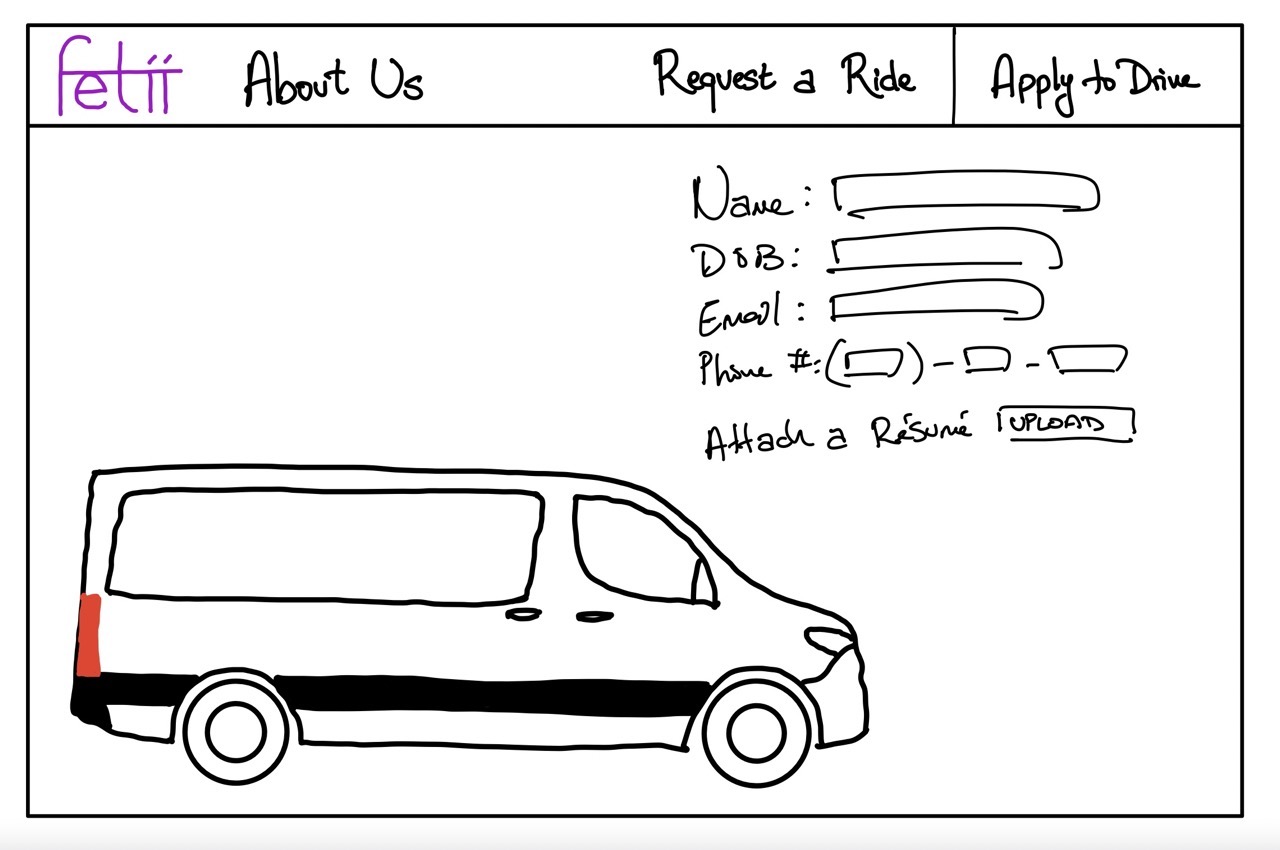 fetii About Us Request a Ride Apply to Drive
Name:
DOB:
Email:
Phone #: ( ) - -
Attach a Résumé UPLOAD